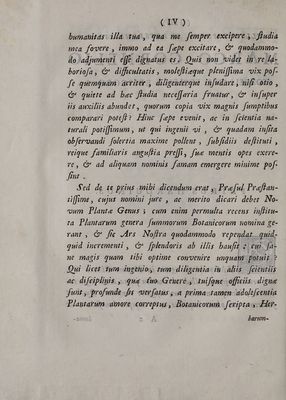 ( IV )
humanitas illa tua, qua me semper excipere, studia
mea fovere, immo ad ea sæpe excitare, & quodammo-
do adjumenti esse dignatus es. Quis non videt in re la-
boriosa, & difficultatis, molestiæque plenissima vix pos-
se quemquam acriter, diligenterque insudare, nisi otio,
& quiete ad hæc studia necessaria fruatur, & insuper
iis auxiliis abundet, quorum copia vix magnis sumptibus
comparari potest? Hinc sæpe evenit, ac in scientia na-
turali potissimum, ut qui ingenii vi, & quadam insita
observandi solertia maxime pollent, subsidiis destituti,
reique familiaris angustia pressi, sua mentis opes exere-
re, & ad aliquam nominis famam emergere minime pos-
sint.
Sed de te prius mihi dicendum erat, Præsul Præstan-
tissime, cujus nomini jure, ac merito dicari debet No-
vum Plantæ Genus; cum enim permulta recens institu-
ta Plantarum genera summorum Botanicorum nomina ge-
rant, & sic Ars Nostra quodammodo rependat quid-
quid incrementi, & splendoris ab illis hausit: cui sa-
ne magis quam tibi optime convenire unquam potuit?
Qui licet tum ingenio, tum diligentia in aliis scientiis
ac disciplinis, quæ tuo Genere, tuisque officiis dignæ
sunt, profunde sis versatus, a prima tamen adolescentia
Plantarum amore correptus, Botanicorum scripta, Her-
barum-